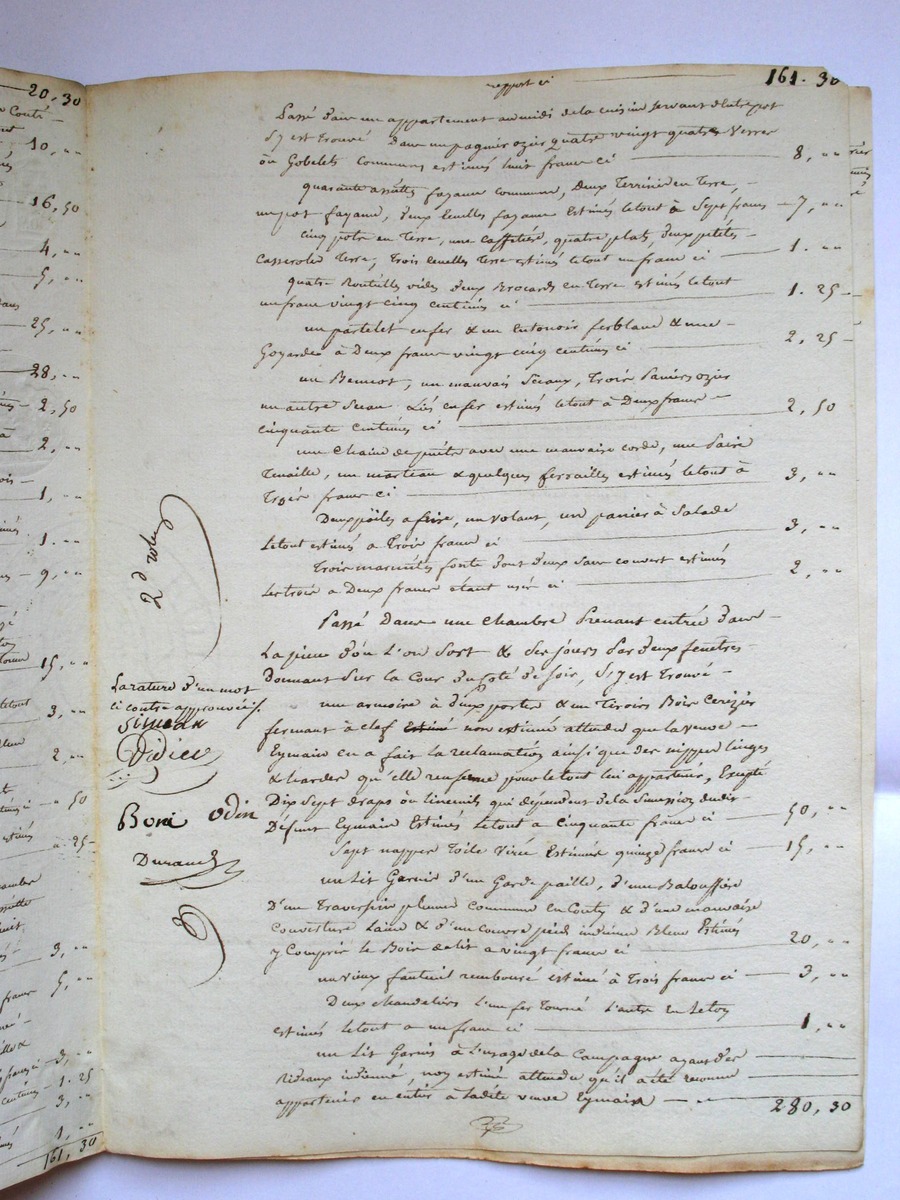 20,30
10, ..
16,50
4, ..
5, ..
25, ..
28, ..
2,50
2, ..
1, ..
1. ..
9, ..
15, ..
3, ..
2, ..
50
25
3, ..
5, ..
3, ..
1.25
3, ..
1, ..
161,30
report ci 161.30
Passé dans un appartement au midi de la cuisine servant d'Entrepot
S'y est trouvé Dans un pagnier ozier quatre vingt quatre Verres
ou Gobelets Communs estimés huit francs ci 8, ..
quarante assittes fayance commun, Deux Terrines en Terre,
un pot fayance, deux Ecuelles fayance Estimés letout à Sept francs 7, ..
Cinq pots en Terre, une Caffetière, quatre plats, deux petites
Casseroles Terre, Trois Ecuelles Terre estimés letout un franc ci 1. ..
quatre Bouteilles vides deux Brocards en Terre estimés letout
un franc vingt cinq centimes ci 1.25
un partelet en fer & un Entonoir ferblanc & une
Goyarde à Deux francs vingt cinq centimes ci 2,25
un Bennot, un mauvais Seaux, Trois Paniers ozier
un autre Seau Liés en fer estimés letout à Deux francs
cinquante Centimes ci 2,50
une Chaine de puits avec une mauvaise corde, une Paire
Tenaille, un marteau & quelques ferrailles estimés letout à
Trois francs ci 3, ..
Deux pöiles a frire, un volant, un panier à Salade
letout estimés a Trois francs ci 3, ..
Trois marmites fonte dont deux Sans couvert estimés
les trois a Deux francs étant usés ci 2, ..
Passé Dans une chambre Prenant entrée dans
La piece d'où L'on Sort & Ses jours Par deux fenetres
Donnant Sur la Cour du Coté de Soir, S'y est Trouvé
une armoire à deux portes & un Tiroirs Bois Cerizier
fermant à clef Estimé non estimé attendu que la veuve
Eymain en a fait la réclamation ainsi que des nippes linges
& hardes qu'elle renferme pour le tout lui appartenir, Excepté
Dix Sept draps ou linceuils qui dépendent de la Succession dudit
Défunt Eymain Estimés Letout a Cinquante francs ci 50, ..
Sept nappes Toile Estimées quinze francs ci 15, ..
un Lit Garni d'un Garde paille, d'une Balouffière
D'un Traversin plume Commune en Couty & d'une mauvaise
couverture Laine & d'un couvre pieds indienne Bleue Estimés
y Compris le Bois de lit a vingt francs ci 20, ..
un vieux fauteuil rembouré estimé à Trois francs ci 3, ..
Deux chandeliers L'un fer Tourné L'autre en Leton
estimés letout a un franc ci 1, ..
un Lit Garni à L'usage de la Campagne ayant des
Rideaux indienne, non estimé attendu qu'il a été reconnu
appartenir en entier à Ladite veuve Eymain
280,30
La rature d'un mot
ci contre approuvée
Simean
Didier
Boni Odin
Durand